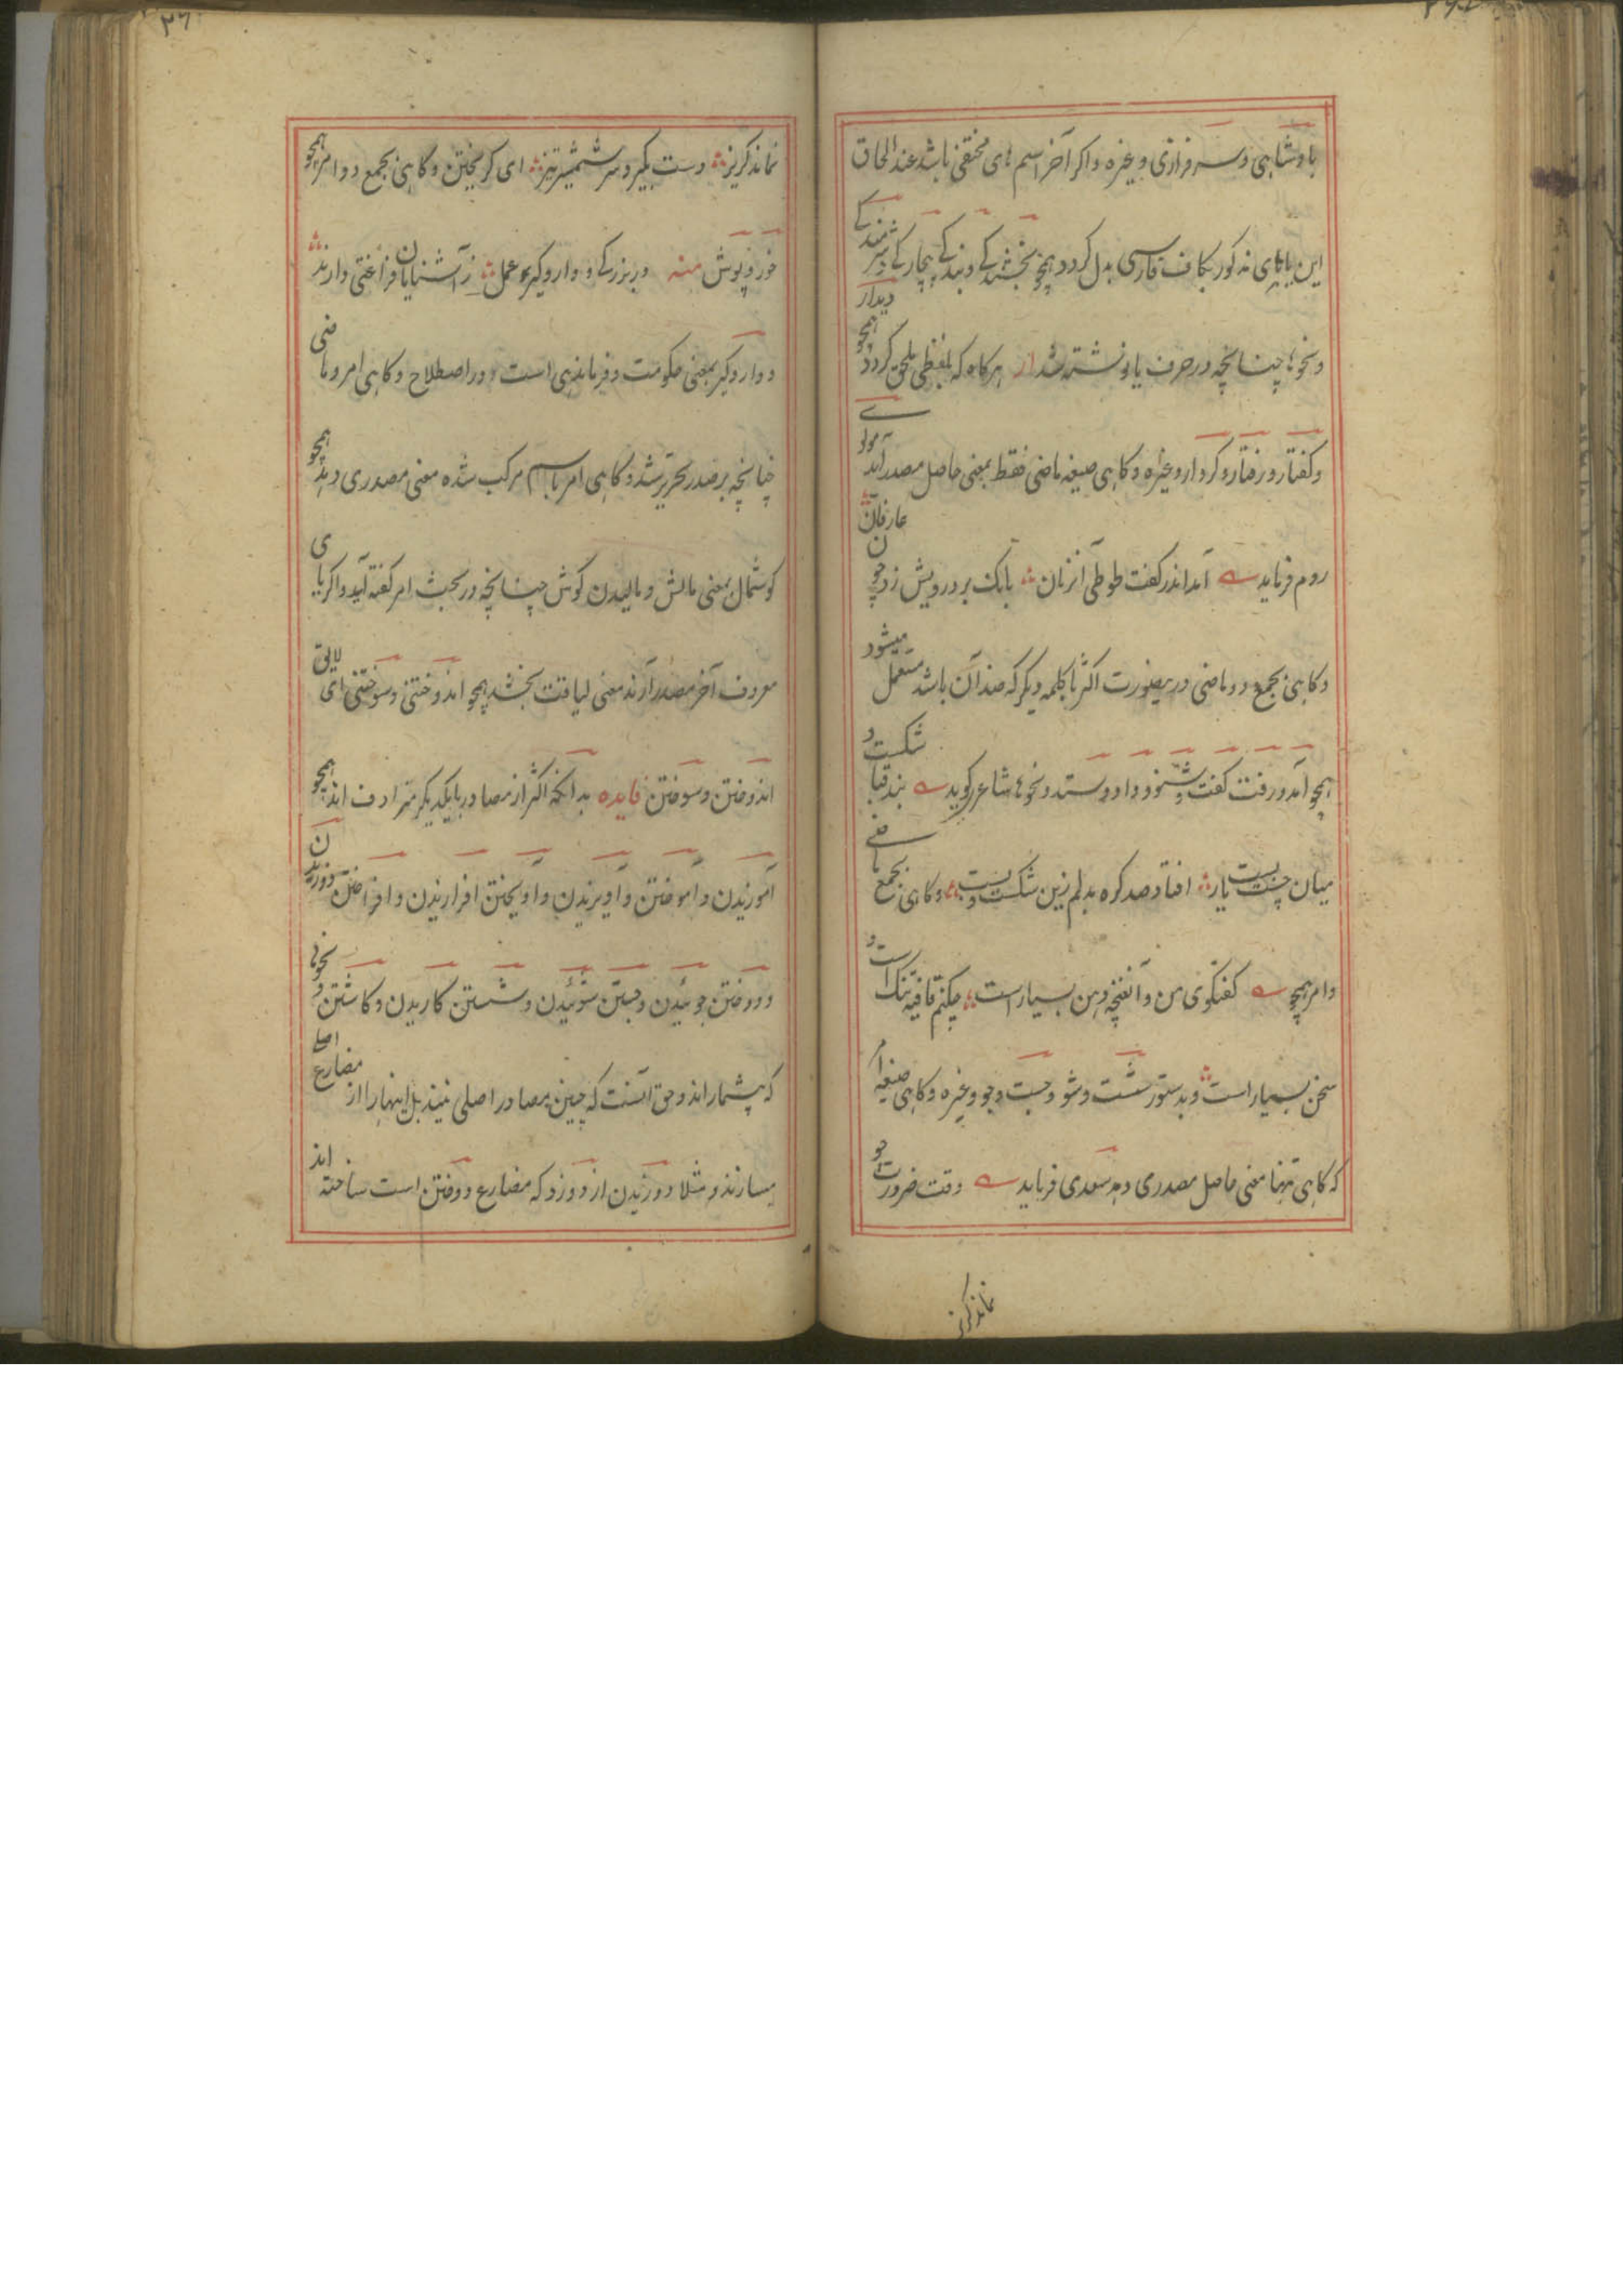 بادشاهی و سرفرازی و غیره و اگر آخر اسم های مختفی باشد عند الحاق
این یا های مذکور بکاف فارسی بدل کردد همچو بخشندکے و بندکے بیچارکے و شرمندکے
و نحوها چنانچه در حرف یا نوشته شد ار هرکاه که بلفظی ملحق کردد همچو دیدار
و کفتار و رفتار و کردار و غیره و کاهی صیغه ماضی فقط بمعنی حاصل مصدر آید مولوے
روم فرماید آمد اندر کفت طوطی آنزمان بانک بر درویش زد چون عارفان
و کاهی بجمع دو ماضی درینصورت اکثر با کلمه دیکر که ضد آن باشد مستعمل میشود
همچو آمد و رفت کفت و شنود و داد و ستد و نحوها شاعر کوید بند قبا شکست و
میان چست بست یار افتاد صد کره بدلم زین شکست و بست و کاهی بجمع ماضے
و امر همچو کفتکوی من و آنغنچه دهن بسیار است چکنم قافیه تنک است و
سخن بسیار است و بدستور شست و شو و جست و جو و غیره و کاهی صیغه امر
که کاهی تنها معنی حاصل مصدری دهد سعدی فرماید وقت ضرورت چو
نماند کریز
نماند کریز دست بکیرد سر شمشیر تیز ای کریختن و کاهی بجمع دو امر همچو
خور و پوش منه در بزرکے و دار و کیر عمل ز آشنایان فراغتی دارند
و دار و کیر بمعنی حکومت و فرماندهی است در اصطلاح و کاهی امر و ماضی
چنانچه بر صدر تحریر شد و کاهی امر با اسم مرکب شده معنی مصدری دهد همچو
کوشمال بمعنی مالش و مالیدن کوش چنانچه در بحث امر کفته آید و اکر یای
معروف آخر مصدر آرند معنی لیاقت بخشد همچو اندوختنی و سوختنی ای لایق
اندوختن و سوختن فایده بدانکه اکثر از مصادر با یکدیکر مترادف اند همچو
آموزیدن و آموختن و آویزیدن و آویختن افرازیدن و افراختن دوزیدن
و دوختن جوئیدن و جستن شوئیدن و شستن کاریدن و کاشتن و نحوها
که بیشمار اند و حق آنست که چنین مصادر اصلی نیند بل اینها را از مضارع
میسازند و مثلا دوزیدن از دوزد که مضارع دوختن است ساخته اند